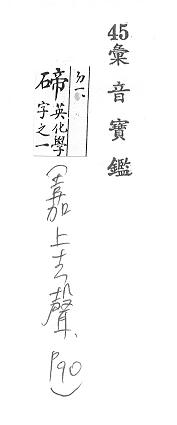 45彙音寶鑑
ㄉㄧ、
碲
英化學
字之一
(嘉上去聲、P90)